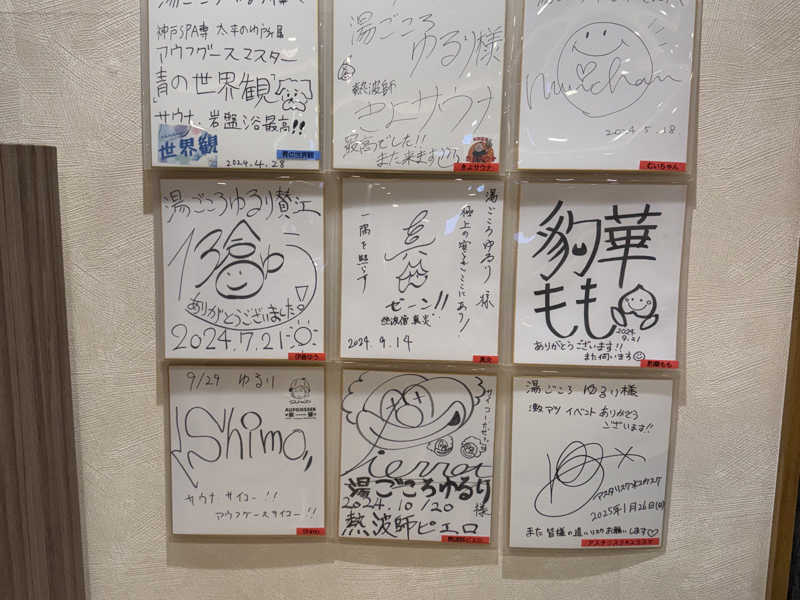 神戸SPA専 太平のゆ所属
アウフグースマスター
青の世界観
サウナ、岩盤浴最高!!
世界観
2024.4.28
青の世界観
湯ごころ
ゆるり様
熱波師
きよサウナ
最高でした!!
また来ます
きよサウナ
muichan
2024.5.18
むいちゃん
湯ごころゆるり贄江
ゆう
ありがとうございました!
2024.7.21
伊倉ゆう
湯ごころゆるり様
極上の安らぎここにあり!
一隅を照らす
ゼーン!!
熱波僧 真炎
2024.9.14
真炎
豹華
もも
2024.
9.21
ありがとうございます!!
また伺います
豹華もも
9/29 ゆるり
AUFGUSSER
Shimo
サウナ サイコー!!
アウフグースサイコー!!
Shimo
サイコーだぜっ
Pierrot
湯ごころゆるり
様
2024.10/20
熱波師ピエロ
熱波師ピエロ
湯ごころ ゆるり様
激アツ イベント ありがとう
ございます!!
2025年1月26日(日)
また 皆様の追いリスク お願いします♡